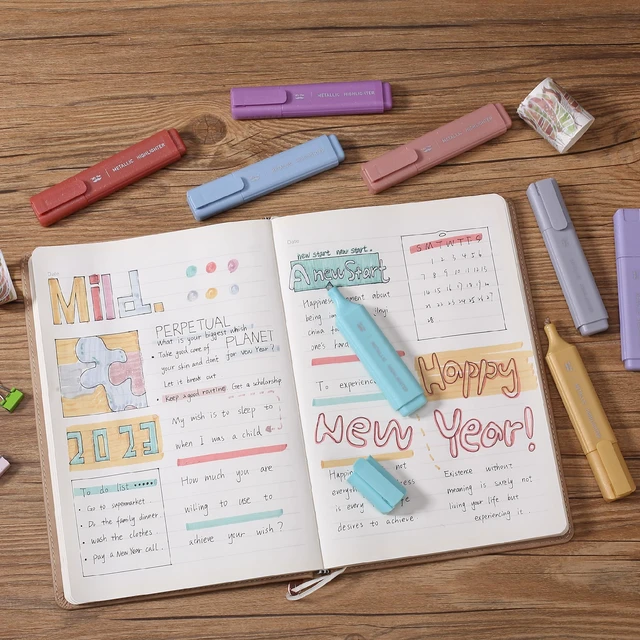 METALLIC HIGHLIGHTER
METALLIC HIGHLIGHTER
METALLIC HIGHLIGHTER
Date
Mild.
PERPETUAL
PLANET
What is your biggest which
for new Year?
• Take good care of
your skin and don't
Let it break out
Keep a good routine
Get a scholarship
My wish is to sleep to
when I was a child
2023
To do list
• Go to supermarket
• Do the family dinner
• wash the clothes
• pay a New Year call.
How much you are
wiking to use to
achieve your wish?
Date
new start new start.
A new Start
SMTWTFS
Happiness about
being
one's
To experience
Happy
New Year!
not
is every
desires to achieve
Existence without
meaning is surely not
living your life but
experiencing it.